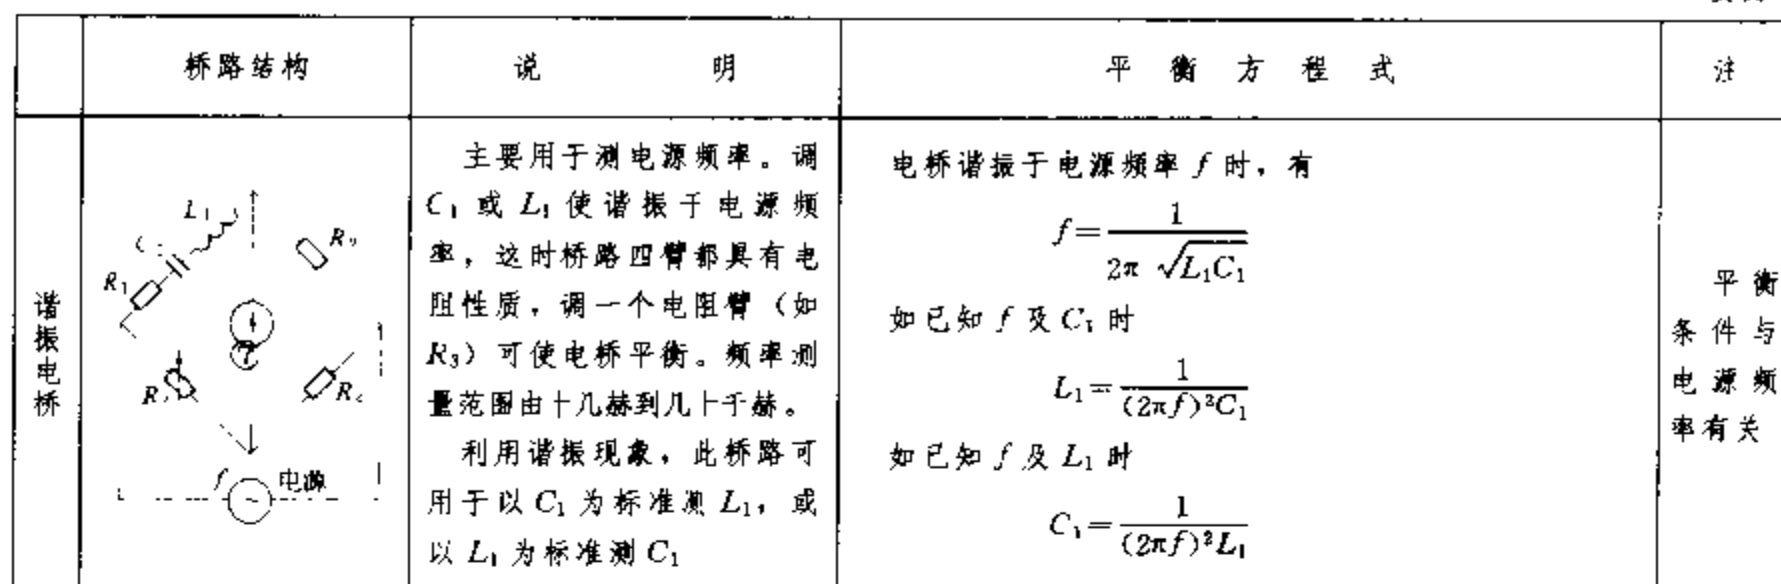 桥路结构 说 明 平 衡 方 程 式 注
谐振电桥
L₁
R₁
R₂
R₄
f 电源
主要用于测电源频率。调
C₁ 或 L₁ 使谐振于电源频
率，这时桥路四臂都具有电
阻性质，调一个电阻臂（如
R₃）可使电桥平衡。频率测
量范围由十几赫到几十千赫。
利用谐振现象，此桥路可
用于以 C₁ 为标准测 L₁，或
以 L₁ 为标准测 C₁
电桥谐振于电源频率 f 时，有
f=1/(2π √(L₁C₁))
如已知 f 及 C₁ 时
L₁=1/((2πf)²C₁)
如已知 f 及 L₁ 时
C₁=1/((2πf)²L₁)
平衡
条件与
电源频
率有关